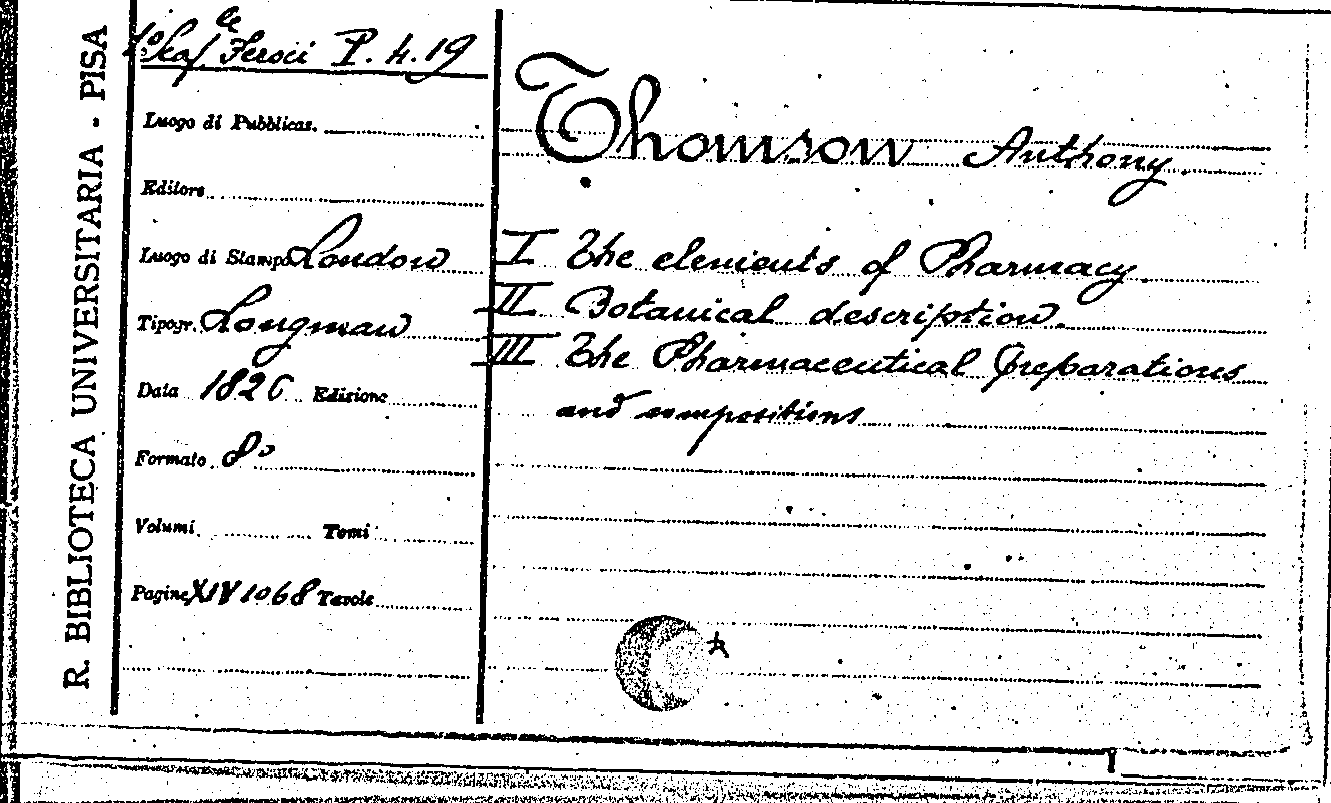 R. BIBLIOTECA UNIVERSITARIA - PISA
1º Scaf.le Feroci P. 4. 19
Luogo di Pubblicaz.
Editore
Luogo di Stampa London
Tipogr. Longman
Data 1826 Edizione
Formato 8º
Volumi Tomi
Pagine XIV 1068 Tavole
Thomson Anthony
I The elements of Pharmacy
II Botanical description.
III The Pharmaceutical preparations
and compositions